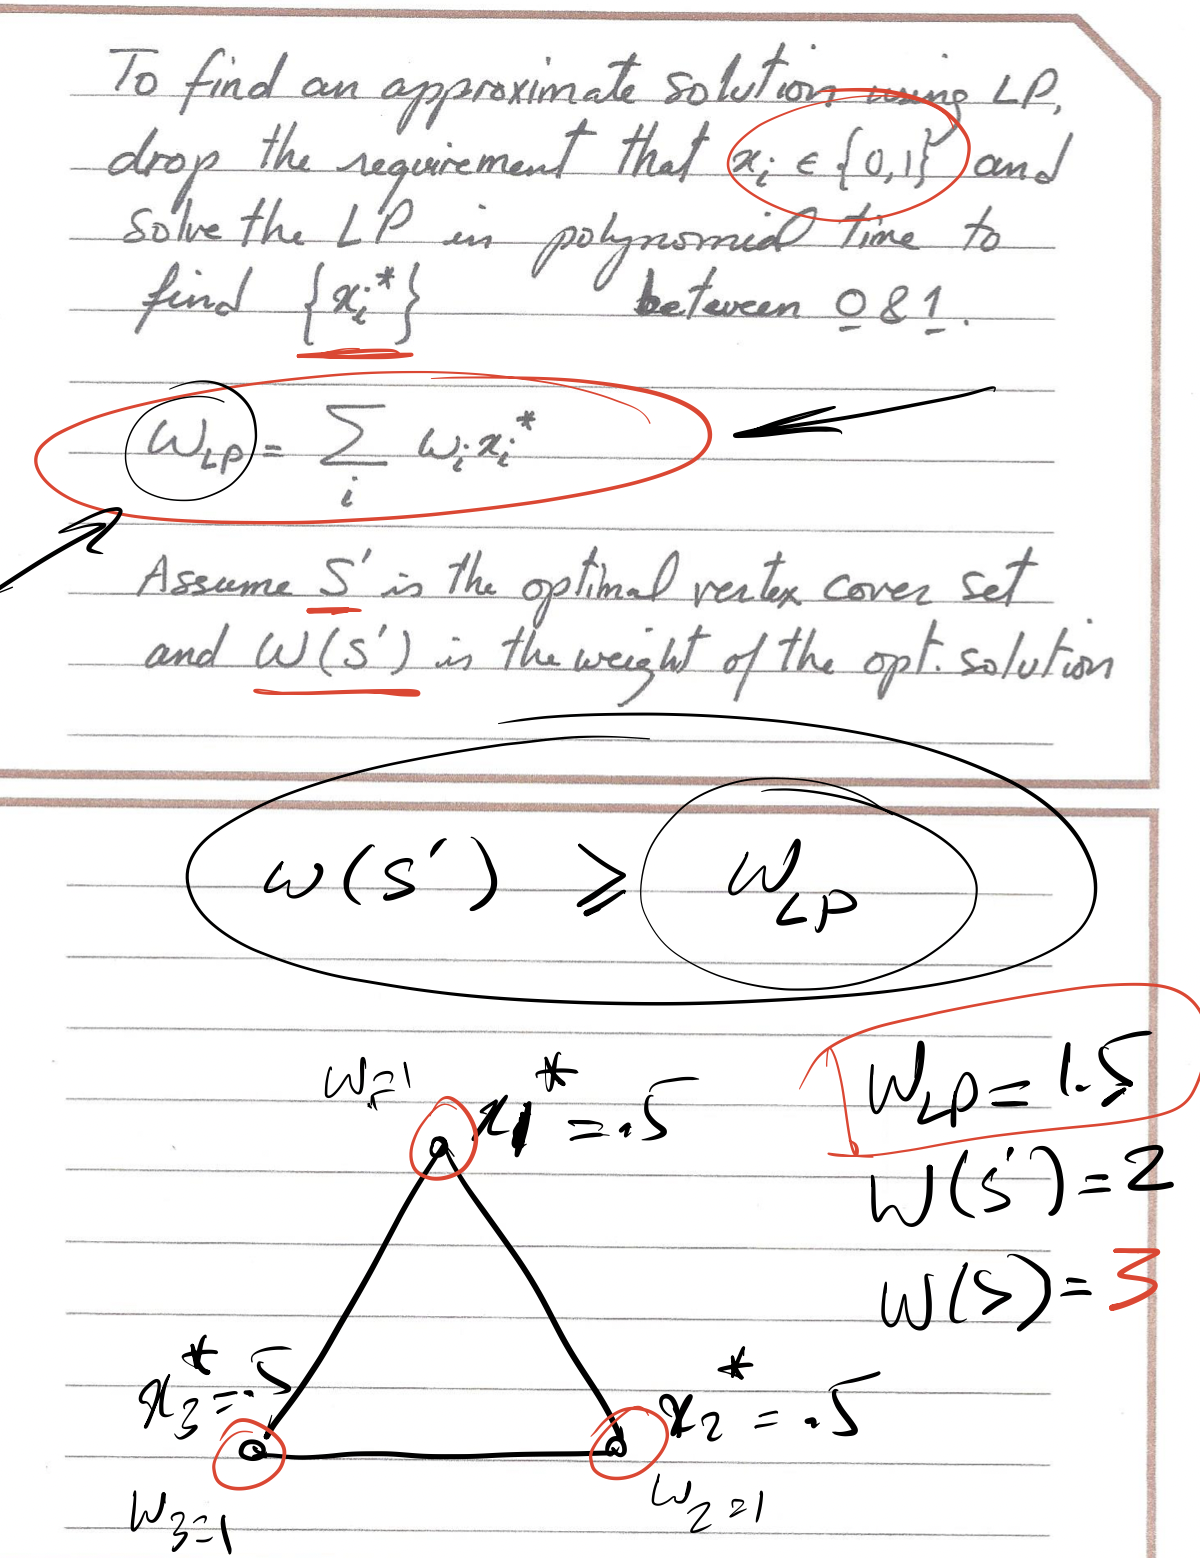 To find an approximate solution using LP,
drop the requirement that xᵢ ∈ {0,1} and
solve the LP in polynomial time to
find {xᵢ*} between 0 & 1.
W_LP = Σ_i wᵢxᵢ*
Assume S' is the optimal vertex cover set
and W(S') is the weight of the opt. solution
w(S') ≥ W_LP
W₁=1
x₁* = .5
W_LP = 1.5
W(S') = 2
W(S) = 3
x₃* = .5
x₂* = .5
W₃=1
W₂=1